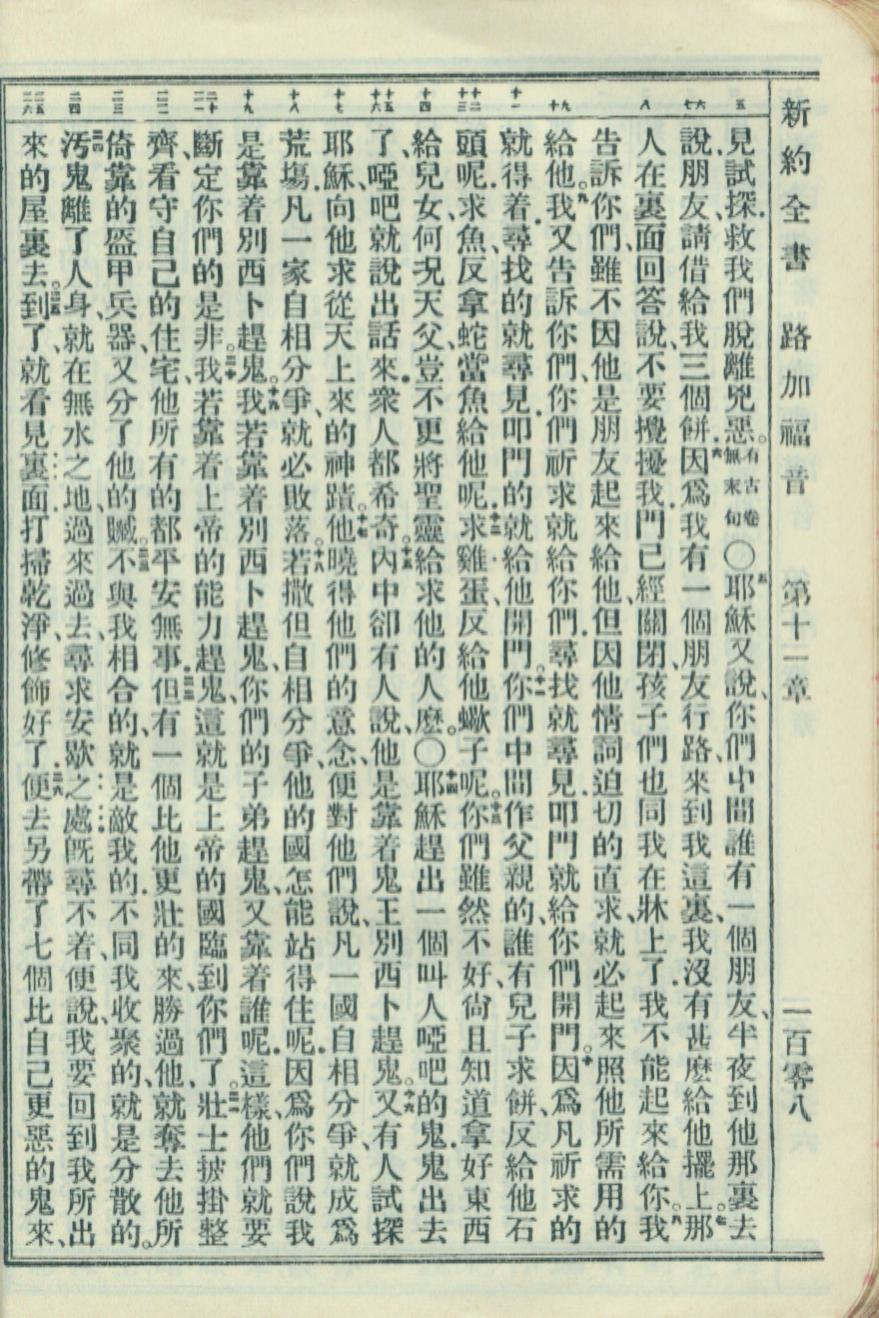 新約全書 路加福音 第十一章 一百零八
五
見試探、救我們脫離兇惡。有古卷無末句〇五耶穌又說、你們中間誰有一個朋友、半夜到他那裏去
六 七
說、朋友、請借給我三個餅、六因爲我有一個朋友行路、來到我這裏、我沒有甚麼給他擺上。七那
八
人在裏面回答說、不要攪擾我、門已經關閉、孩子們也同我在牀上了、我不能起來給你。八我
告訴你們、雖不因他是朋友起來給他、但因他情詞迫切的直求、就必起來照他所需用的
九 十
給他。九我又告訴你們、你們祈求就給你們、尋找就尋見、叩門就給你們開門。十因爲凡祈求的
十一
就得着、尋找的就尋見、叩門的就給他開門。十一你們中間作父親的、誰有兒子求餅、反給他石
十二 十三
頭呢、求魚、反拿蛇當魚給他呢、十二求雞蛋、反給他蠍子呢。十三你們雖然不好、尙且知道拿好東西
十四
給兒女、何況天父、豈不更將聖靈給求他的人麼。〇十四耶穌趕出一個叫人啞吧的鬼、鬼出去
十五 十六
了、啞吧就說出話來、衆人都希奇、十五內中卻有人說、他是靠着鬼王別西卜趕鬼。十六又有人試探
十七
耶穌、向他求從天上來的神蹟。十七他曉得他們的意念、便對他們說、凡一國自相分爭、就成爲
十八
荒塲、凡一家自相分爭、就必敗落。十八若撒但自相分爭、他的國怎能站得住呢、因爲你們說我
十九
是靠着別西卜趕鬼。十九我若靠着別西卜趕鬼、你們的子弟趕鬼、又靠着誰呢、這樣、他們就要
二十 二一
斷定你們的是非。二十我若靠着上帝的能力趕鬼、這就是上帝的國臨到你們了。二一壯士披掛整
二二
齊、看守自己的住宅、他所有的都平安無事、二二但有一個比他更壯的來、勝過他、就奪去他所
二三
倚靠的盔甲兵器、又分了他的贓。二三不與我相合的、就是敵我的、不同我收聚的、就是分散的。
二四
二四汚鬼離了人身、就在無水之地、過來過去、尋求安歇之處、旣尋不着、便說、我要回到我所出
二五 二六
來的屋裏去。二五到了、就看見裏面打掃乾淨、修飾好了、二六便去另帶了七個比自己更惡的鬼來、